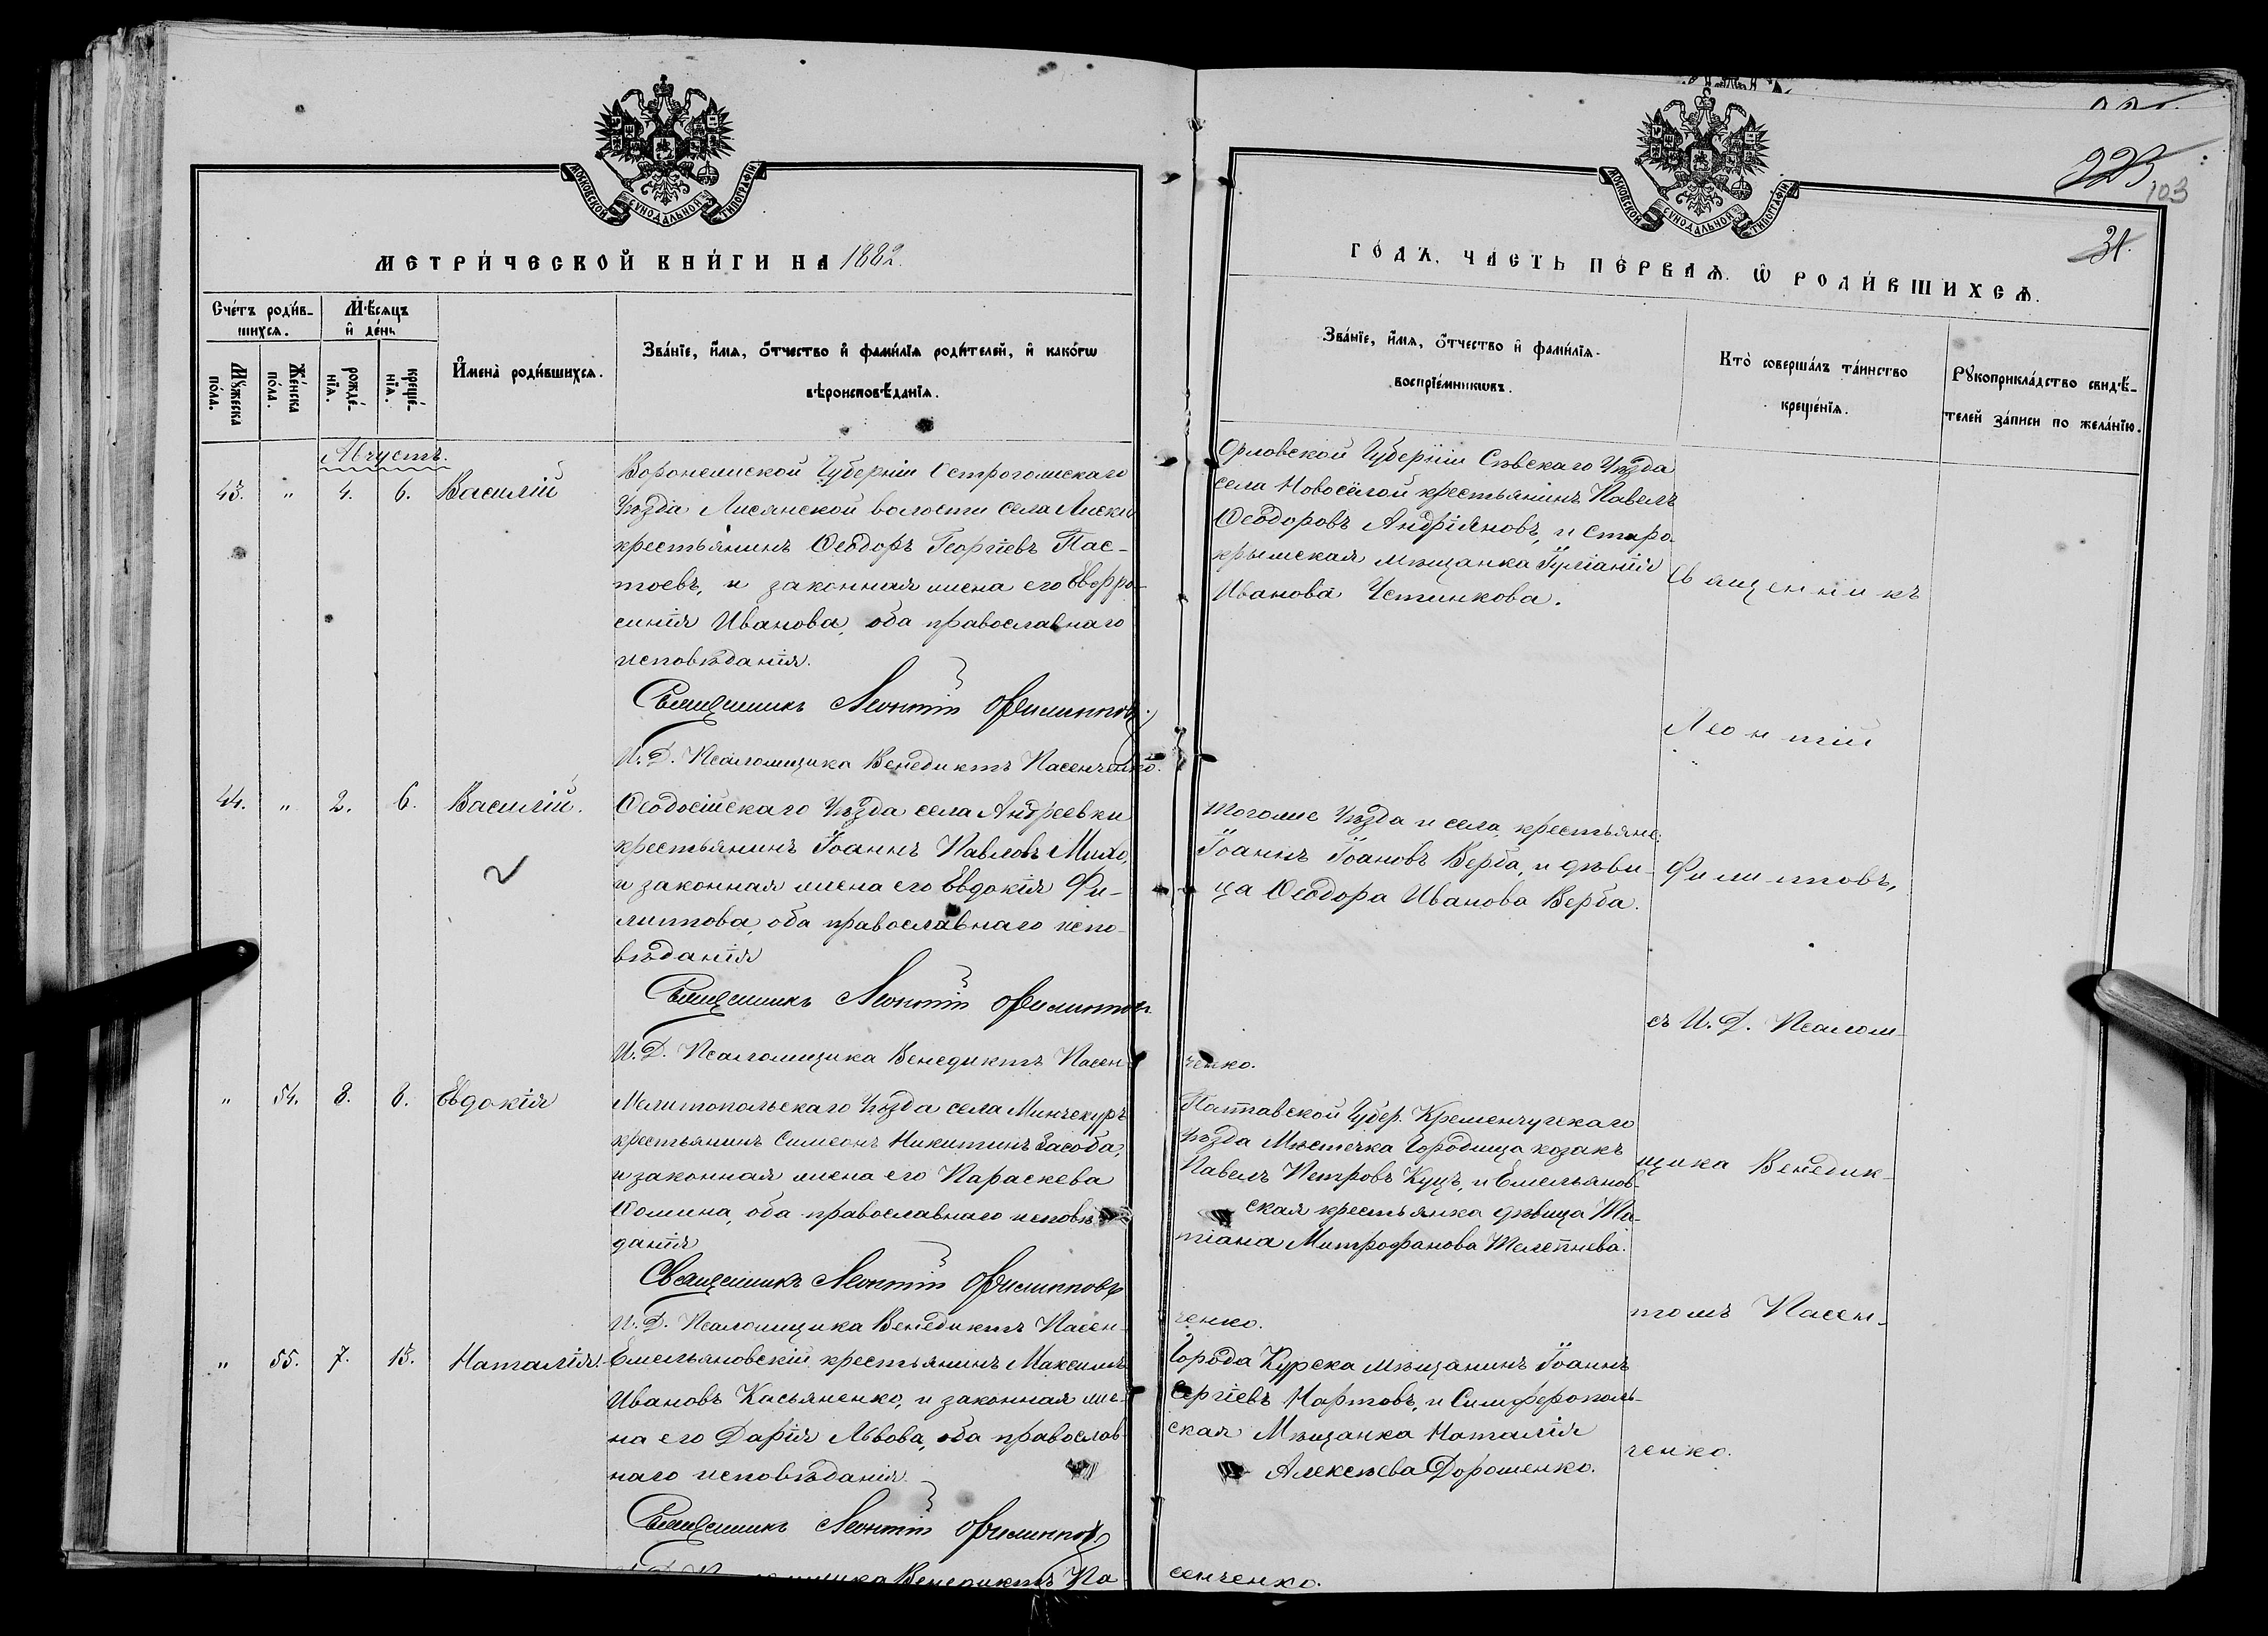 МОСКОВСКОЙ СѴНОДАЛЬНОЙ ТИПОГРАФІИ
МЕТРИ́ЧЕСКОЙ КНИ́ГИ НА 1882.
Сче́тъ роди́в-
шихся.
Мѣ́сяцъ
и҆ де́нь
Мꙋ́жеска
по́ла.
Же́нска
по́ла.
рожде́-
нїѧ.
креще́-
нїѧ.
И҆мена̀ роди́вшихсѧ.
Зва́нїе, и҆́мѧ, ѻ҆́тчество и҆ фами́лїѧ роди́телей, и҆ како́гѡ
вѣроисповѣ́данїѧ.
Августъ.
43. " 4. 6. Василій
Воронежской Губерніи Острогожскаго
Уѣзда Лисянской волости села Лиски
крестьянинъ Ѳеодоръ Георгіевъ Пас-
тоевъ, и законная жена его Евфро-
синія Иванова, оба православнаго
исповѣданія.
Священникъ Леонтій Филипповъ
И. Д. Псаломщика Венедиктъ Пасенченко.
44. " 2. 6. Василій.
Ѳеодосійскаго Уѣзда села Андреевки
крестьянинъ Іоаннъ Павловъ Михо,
и законная жена его Евдокія Фи-
липпова, оба православнаго испо-
вѣданія
Священникъ Леонтій Филипповъ
И. Д. Псаломщика Венедиктъ Пасен-
" 54. 8. 8. Евдокія
Мелитопольскаго Уѣзда села Минчекуръ
крестьянинъ Симеонъ Никитинъ Засоба,
и законная жена его Параскева
Ѳомина, оба православнаго исповѣ-
данія
Священникъ Леонтій Филипповъ
И. Д. Псаломщика Венедиктъ Пасен-
" 55. 7. 13. Наталія.
Емельяновскій крестьянинъ Максимъ
Ивановъ Касьяненко, и законная же-
на его Дарія Львова, оба православ-
наго исповѣданія.
Священникъ Леонтій Филипповъ
Венедиктъ Па-
МОСКОВСКОЙ СѴНОДАЛЬНОЙ ТИПОГРАФІИ
223
103
31.
ГО́ДЪ, ЧА́СТЬ ПЕ́РВАѦ. Ѽ РОДИ́ВШИХСѦ.
Зва́нїе, и҆́мѧ, ѻ҆́тчество и҆ фами́лїѧ
воспрїе́мникѡвъ.
Кто̀ соверша́лъ та́инство
креще́нїѧ.
Рꙋкоприкла́дство свидѣ́-
телей за́писи по жела́нїю.
Орловской Губерніи Сѣвскаго Уѣзда
села Новоселой крестьянинъ Павелъ
Ѳеодоровъ Андріяновъ, и Старо-
крымская мѣщанка Іуліанія
Иванова Устинкова.
тогоже Уѣзда и села, крестьяне:
Іоаннъ Іоановъ Верба, и дѣви-
ца Ѳеодора Иванова Верба.
ченко.
Полтавской Губер. Кременчугскаго
Уѣзда Мѣстечка Городища козакъ
Павелъ Петровъ Куцъ, и Емельянов-
ская крестьянка дѣвица Та-
тіана Митрофанова Телепнева.
ченко.
Города Курска мѣщанинъ Іоаннъ
Сергіевъ Нартовъ, и Симферополь-
ская Мѣщанка Наталія
Алексѣева Дорошенко.
сенченко.
Священникъ
Леонтій
Филипповъ,
съ И. Д. Псалом-
щика Венедик-
томъ Пасен-
ченко.